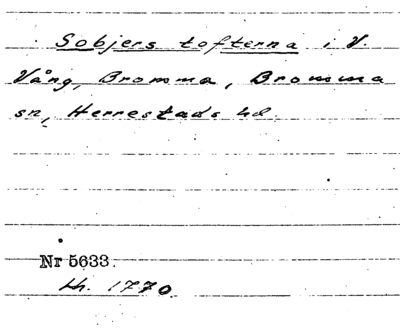 Sobjers tofterna i V.
Vång, Bromma, Bromma
sn, Herrestads hd.
Nr 5633.
Lh. 1770.